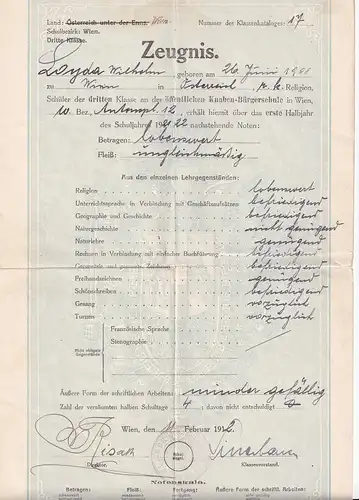 Land: Österreich unter der Enns. Wien
Nummer des Klassenkataloges: 17
Schulbezirk: Wien.
Dritte Klasse.
Zeugnis.
Loyda Wilhelm geboren am 26. Juni
zu Wien in Österreich, r. k. Religion,
Schüler der dritten Klasse an der öffentlichen Knaben-Bürgerschule in Wien,
10. Bez., 12, erhält hiemit über das erste Halbjahr
des Schuljahres 1921/22 nachstehende Noten:
Betragen: lobenswert
Fleiß: ungleichmäßig
Aus den einzelnen Lehrgegenständen:
Religion lobenswert
Unterrichtssprache in Verbindung mit Geschäftsaufsätzen befriedigend
Geographie und Geschichte befriedigend
Naturgeschichte nicht genügend
Naturlehre genügend
Rechnen in Verbindung mit einfacher Buchführung befriedigend
Geometrie und geometr. Zeichnen befriedigend
Freihandzeichnen genügend
Schönschreiben befriedigend
Gesang vorzüglich
Turnen vorzüglich
Nicht obligate Gegenstände
Französische Sprache
Stenographie
Äußere Form der schriftlichen Arbeiten: minder gefällig
Zahl der versäumten halben Schultage 4; davon nicht entschuldigt 0
Wien, am 11. Februar 1922
Direktor.
Klassenvorstand.
Notenskala.
Betragen: Fleiß: Fortgang: Äußere Form der schriftl. Arbeiten: